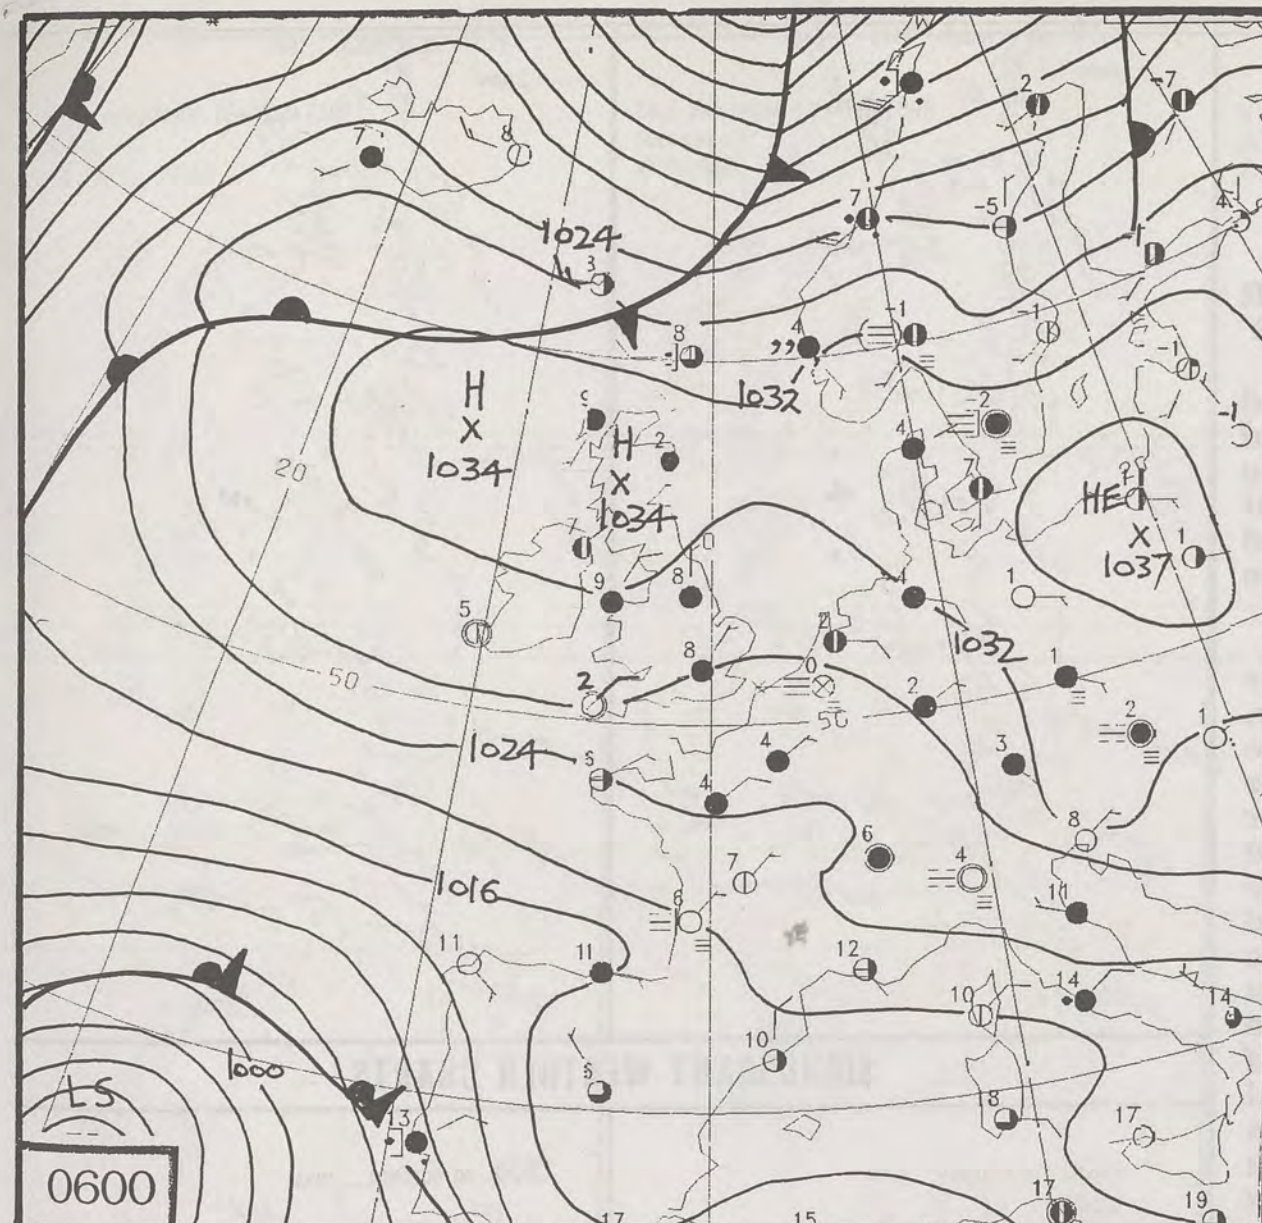 -7
2
7
8
7
4
-5
1024
-1
3
8
4
-1
-1
-1
1032
H
X
1034
9
-2
-1
H
X
1034
2
4
20
7
HE
2
X
1037
1
0
9
8
4
1
5
2
1032
8
0
1
50
2
2
50
2
1
1024
4
3
6
4
8
6
4
7
1016
6
11
11
11
12
10
14
14
10
1000
LS
13
18
17
0600
17
15
17
19